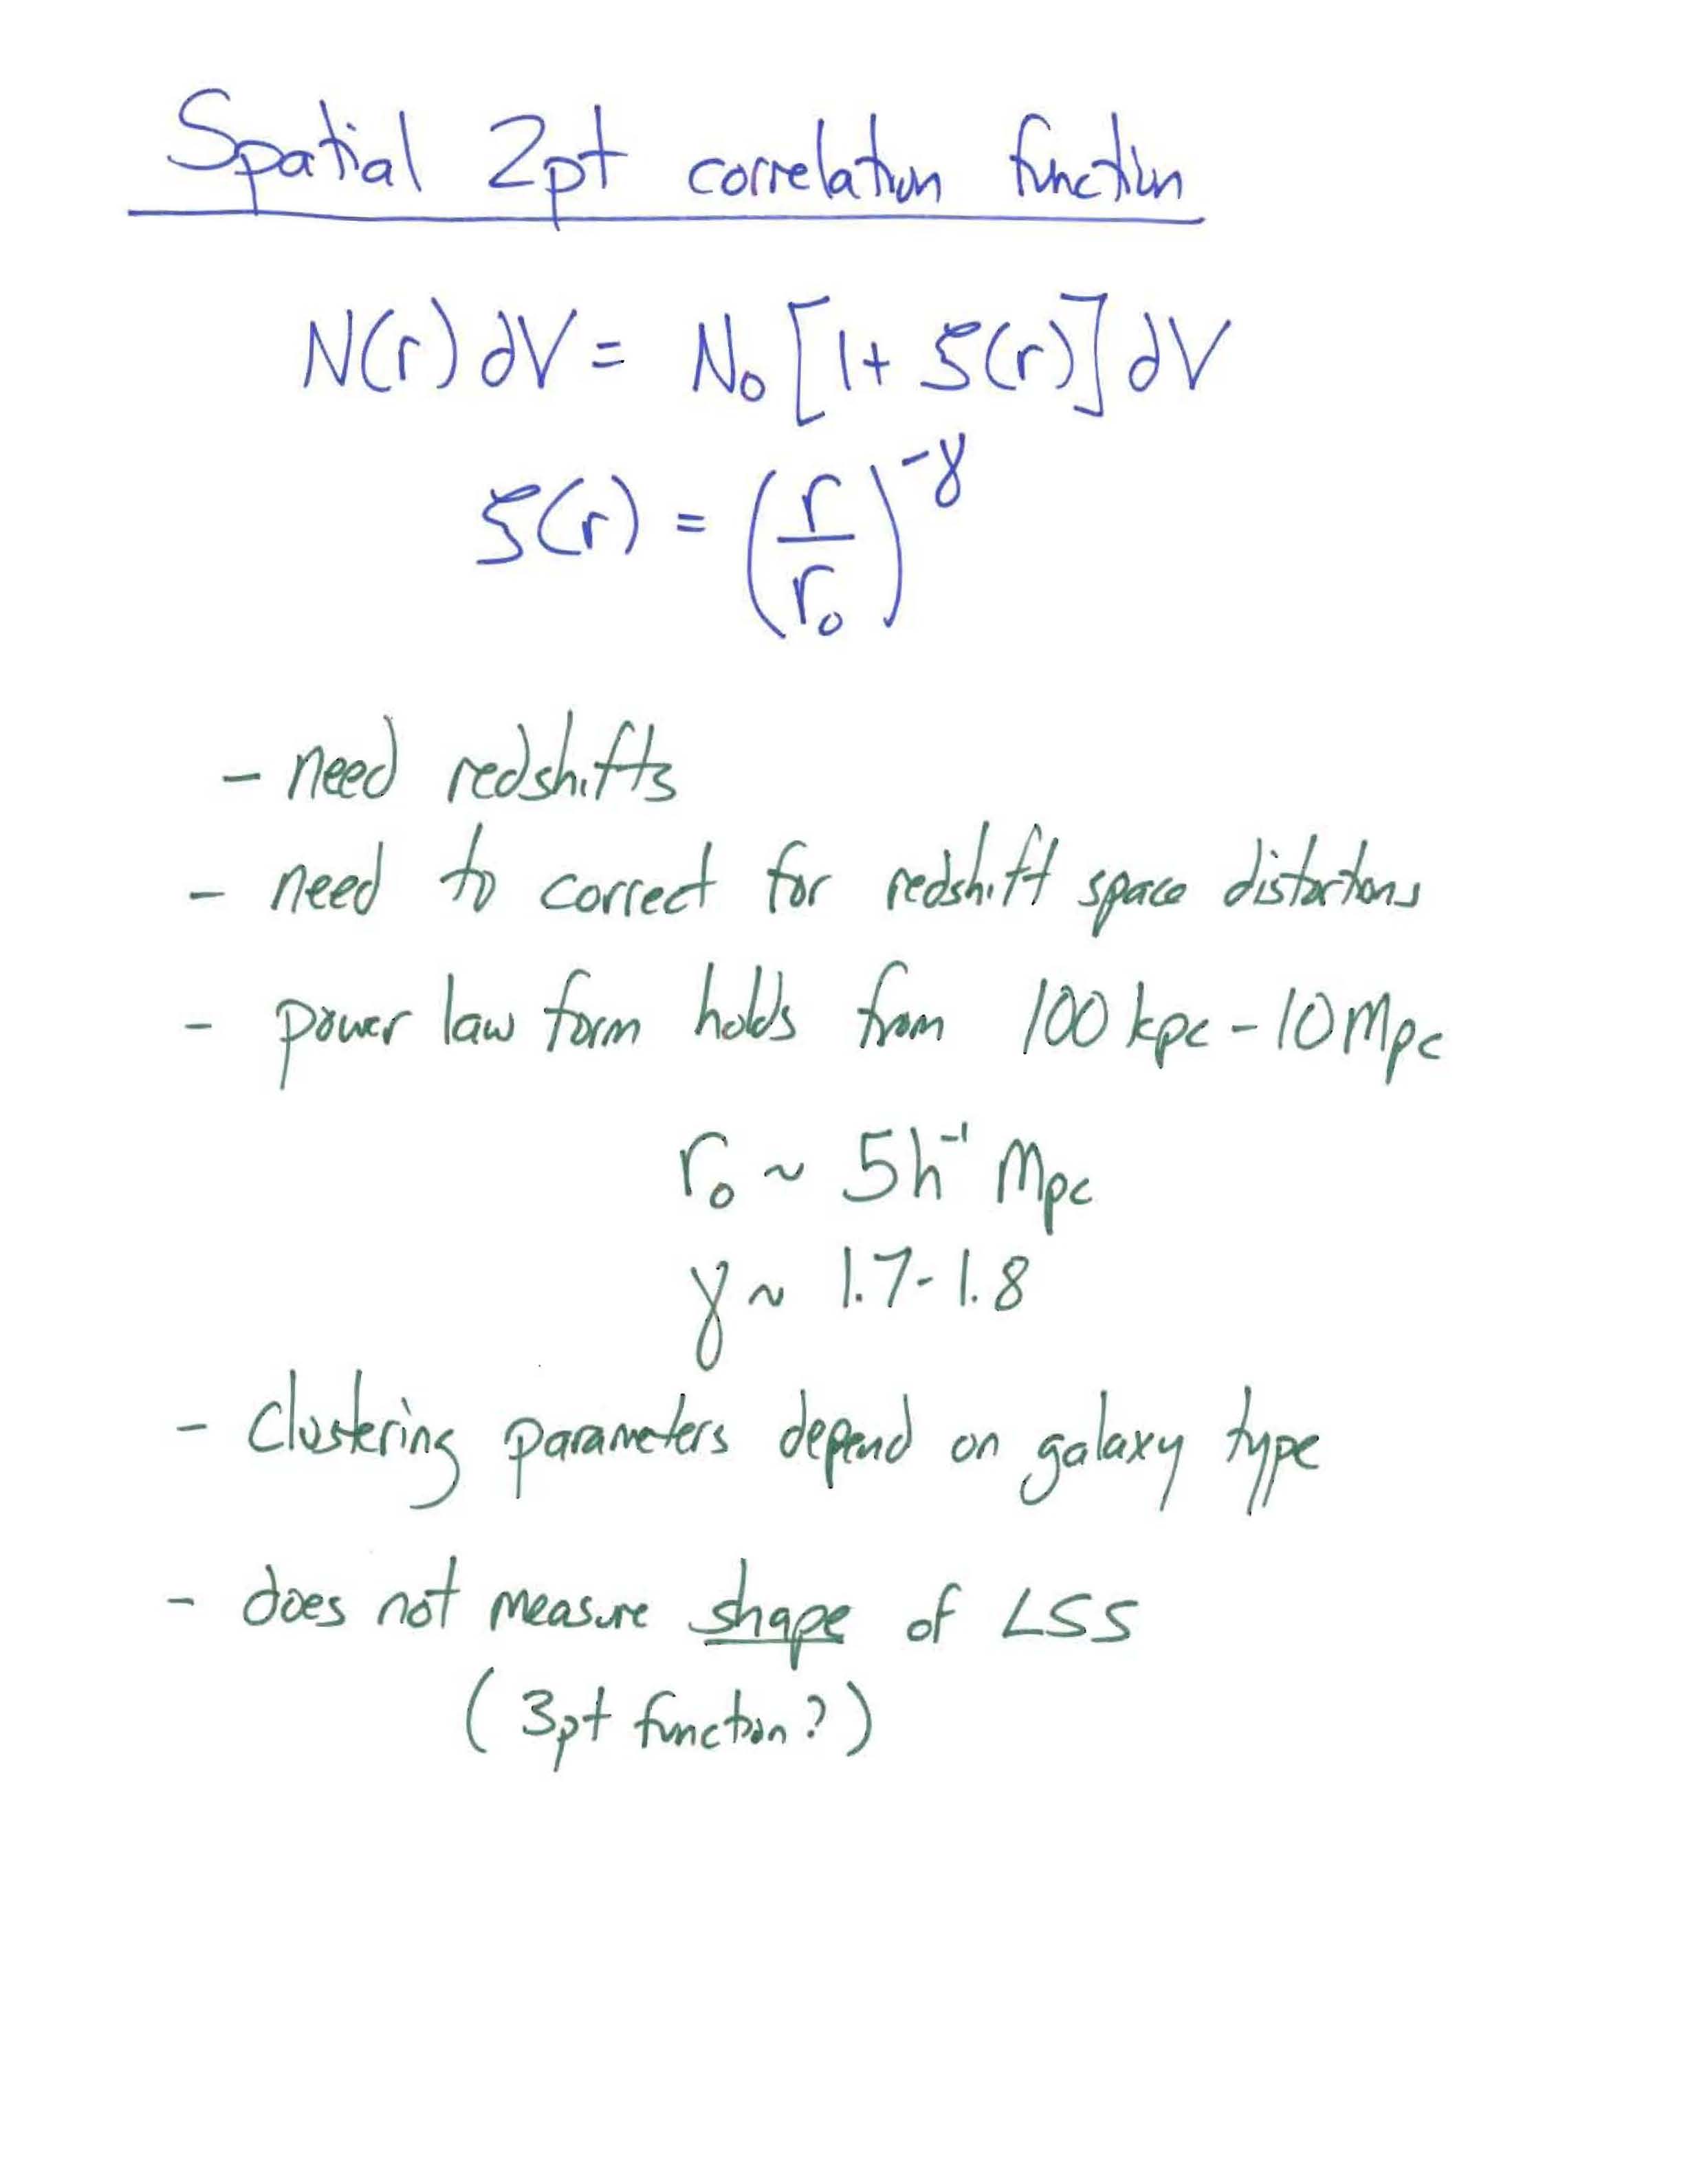 Spatial 2pt correlation function
N(r) dV = N₀ [1 + ξ(r)] dV
ξ(r) = (r/r₀)^-γ
- need redshifts
- need to correct for redshift space distortions
- power law form holds from 100 kpc - 10 Mpc
r₀ ~ 5 h⁻¹ Mpc
γ ~ 1.7 - 1.8
- clustering parameters depend on galaxy type
- does not measure shape of LSS
(3pt function?)